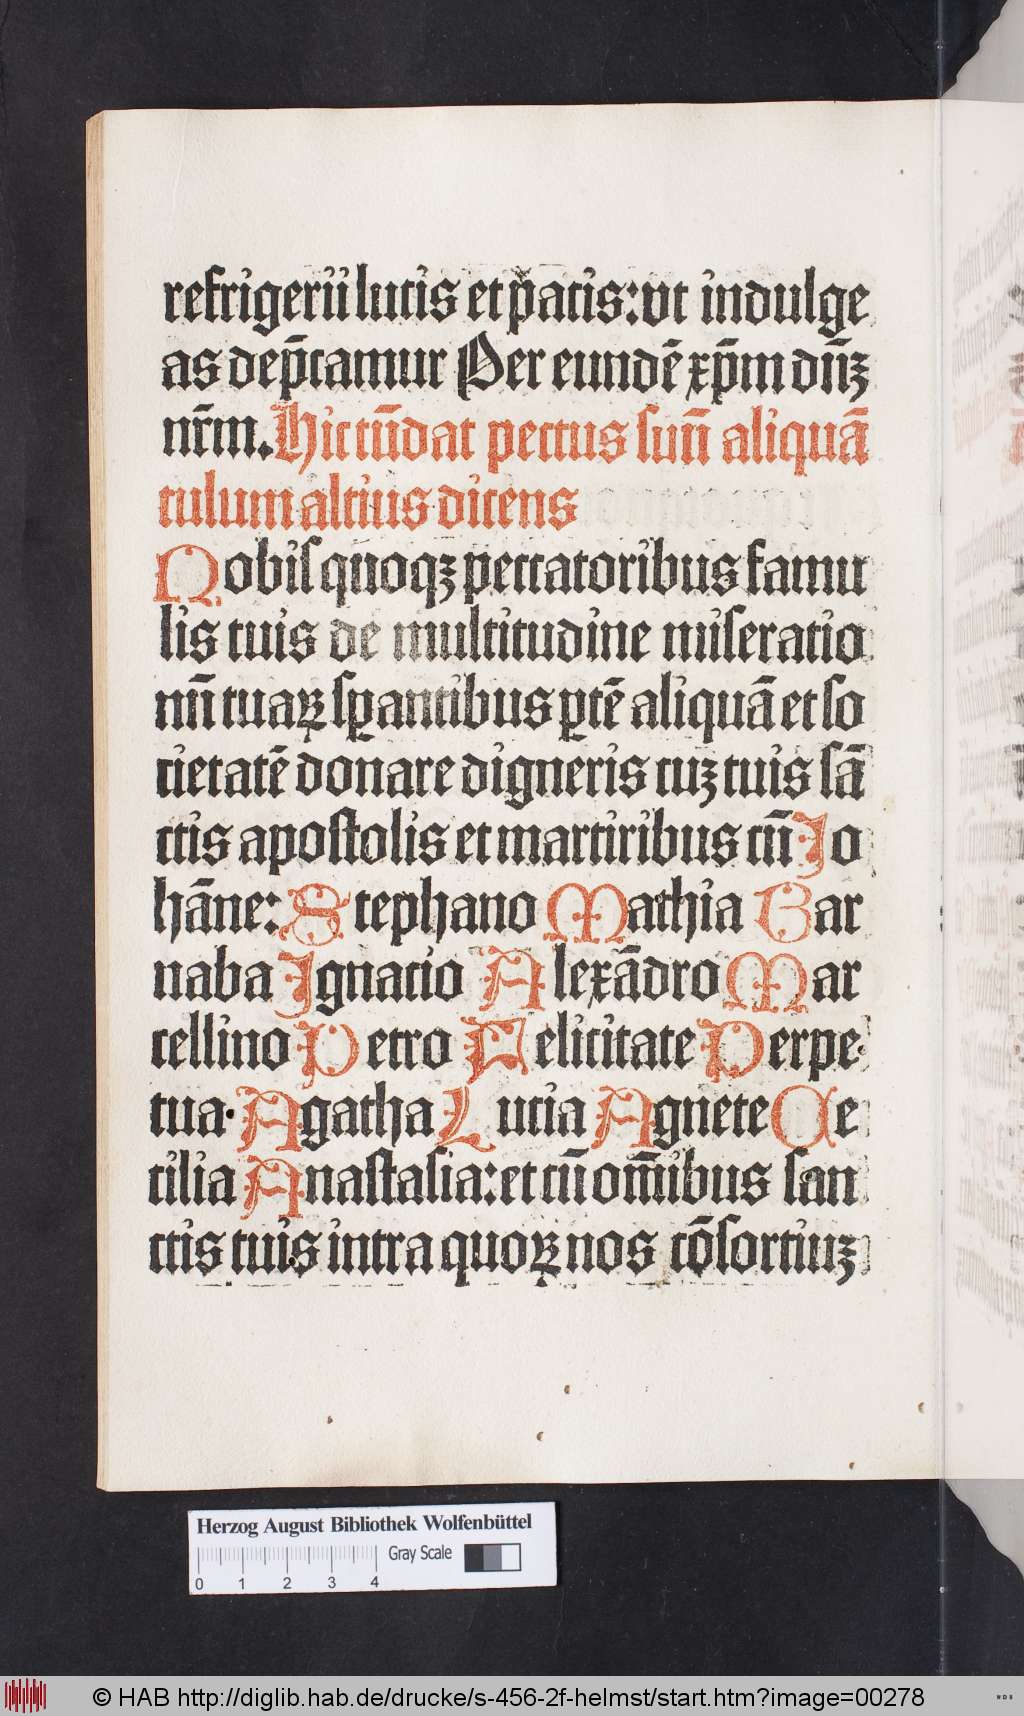 refrigerii lucis et p̄acis: vt indulge
as dep̄camur Per eundē xp̄m dn̄ꝫ
nr̄m. Hic tūdat pectus suū aliquā
tulum altius dicens
Nobis quoqꝫ peccatoribus famu
lis tuis de multitudine miseratio
nū tuaꝝ sꝑantibus ꝑtē aliquā et so
cietatē donare digneris cuꝫ tuis sā
ctis apostolis et martiribus cū Jo
hāne: Stephano Mathia Bar
naba Ignacio Alexādro Mar
cellino Petro Felicitate Perpe
tua· Agatha Lucia Agnete Ce
cilia Anastasia: et cū om̄ibus san
ctis tuis intra quoꝝ nos cōsortiuꝫ
Herzog August Bibliothek Wolfenbüttel
Gray Scale
0 1 2 3 4
© HAB http://diglib.hab.de/drucke/s-456-2f-helmst/start.htm?image=00278